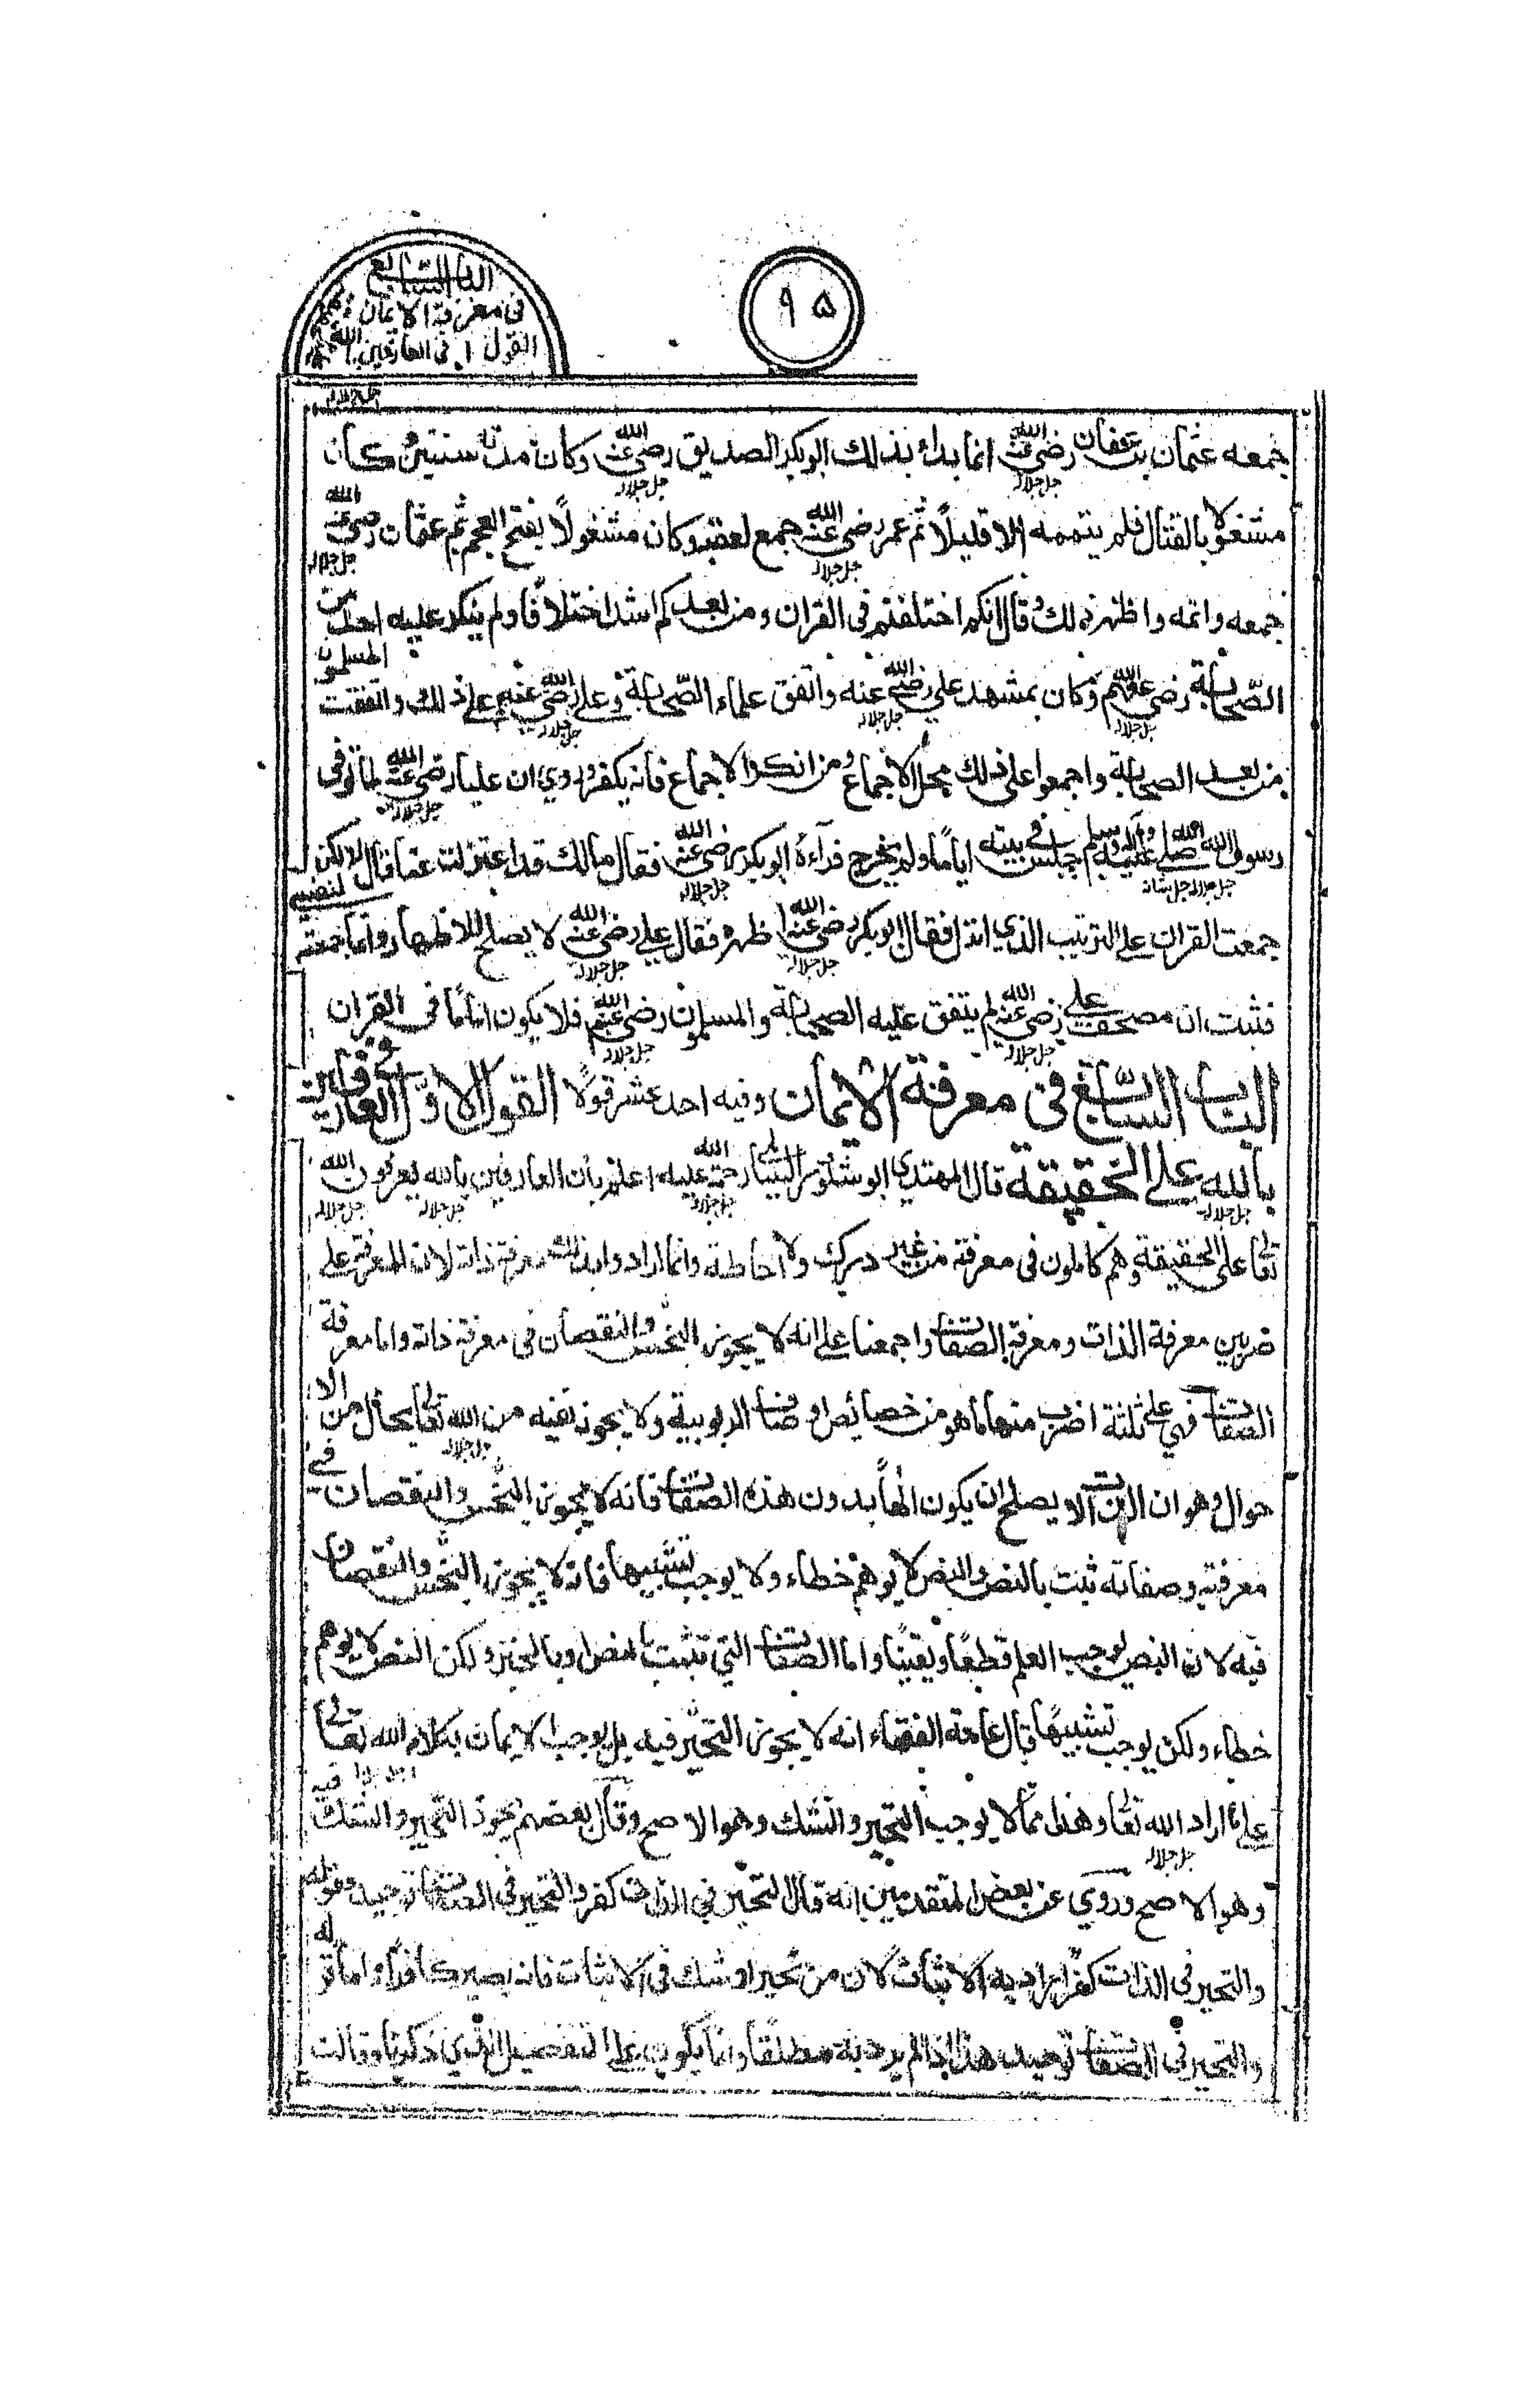 الباب السابع
في معرفة الايمان
القول ١ في العارفين بالله
٩٥
جمعه عثمان بن عفان رضي الله عنه انما بداء بذلك ابوبكر الصديق رضي الله عنه وكان مدة سنتين وكان
مشغولا بالقتال فلم يتممه الا قليلاً ثم عمر رضي الله عنه جمع لعقبه وكان مشغولاً بفتح العجم ثم عثمان رضي الله عنه
جمعه واتمه واظهر ذلك وقال انكم اختلفتم في القران ومن بعدكم اشد اختلافا ولم ينكر عليه احد من
الصحابة رضي الله عنهم وكان بمشهد علي رضي الله عنه واتفق علماء الصحابة وعلي رضي الله عنهم على ذلك واتفقت المسلمون
من بعد الصحابة واجمعوا على ذلك محل الاجماع ومن انكر الاجماع فانه يكفر وروي ان عليا رضي الله عنه لما توفي
رسول الله صلى الله عليه وآله وسلم جلس في بيته اياما ولم يخرج فرآه ابوبكر رضي الله عنه فقال مالك قد اعتزلت عنا قال لا لكن
جمعت القران على الترتيب الذي انزل فقال ابوبكر رضي الله عنه اظهره فقال علي رضي الله عنه لا يصلح للاظهار وانما جمعته لنفسي
فثبت ان مصحف علي رضي الله عنه لم يتفق عليه الصحابة والمسلمون رضي الله عنهم فلا يكون اماما في القران
الباب السابع في معرفة الايمان وفيه احد عشر قولا القول الاول في العارفين
بالله على الحقيقة قال المهتدي ابو شكور السالمي رحمة الله عليه اعلم بان العارفين بالله يعرفون الله
تعالى على الحقيقة وهم كاملون في معرفته من غير درك ولا احاطة وانما ارادوا بذلك معرفة ذاته لان المعرفة على
ضربين معرفة الذات ومعرفة الصفات واجمعنا على انه لا يجوز التحير والنقصان في معرفة ذاته واما معرفة
الصفات فهي على ثلثة اضرب منها ما هو من خصائص اوصاف الربوبية ولا يجوز نفيه من الله تعالى بحال من الا
حوال وهو ان الذات لا يصلح ان يكون الهاً بدون هذه الصفات فانه لا يجوز التحير والنقصان في
معرفته وصفاته ثبت بالنص والنص لا يوهم خطاء ولا يوجب تشبيها فانه لا يجوز التحير والنقصان
فيه لان النص يوجب العلم قطعاً ويقيناً واما الصفات التي تثبت بالنص وبالخبر ولكن النص لا يوهم
خطاء ولكن يوجب تشبيهاً قال عامة الفقهاء انه لا يجوز التحير فيه بل يوجب الايمان بكلام الله تعالى
على ما اراد الله تعالى وهذا مما لا يوجب التحير والشك وهو الاصح وقال بعضهم يجوز التحير والشك فيه
وهو الاصح وروي عن بعض المتقدمين انه قال التحير في الذات كفر والتحير في الصفات توحيد وقوله
والتحير في الذات كفر اراد به الاثبات لان من تحير او شك في الاثبات فانه يصير كافراً واما قوله
والتحير في الصفات توحيد هذا اذا لم يرد به مطلقا وانما يكون على التفصيل الذي ذكرنا وقالت